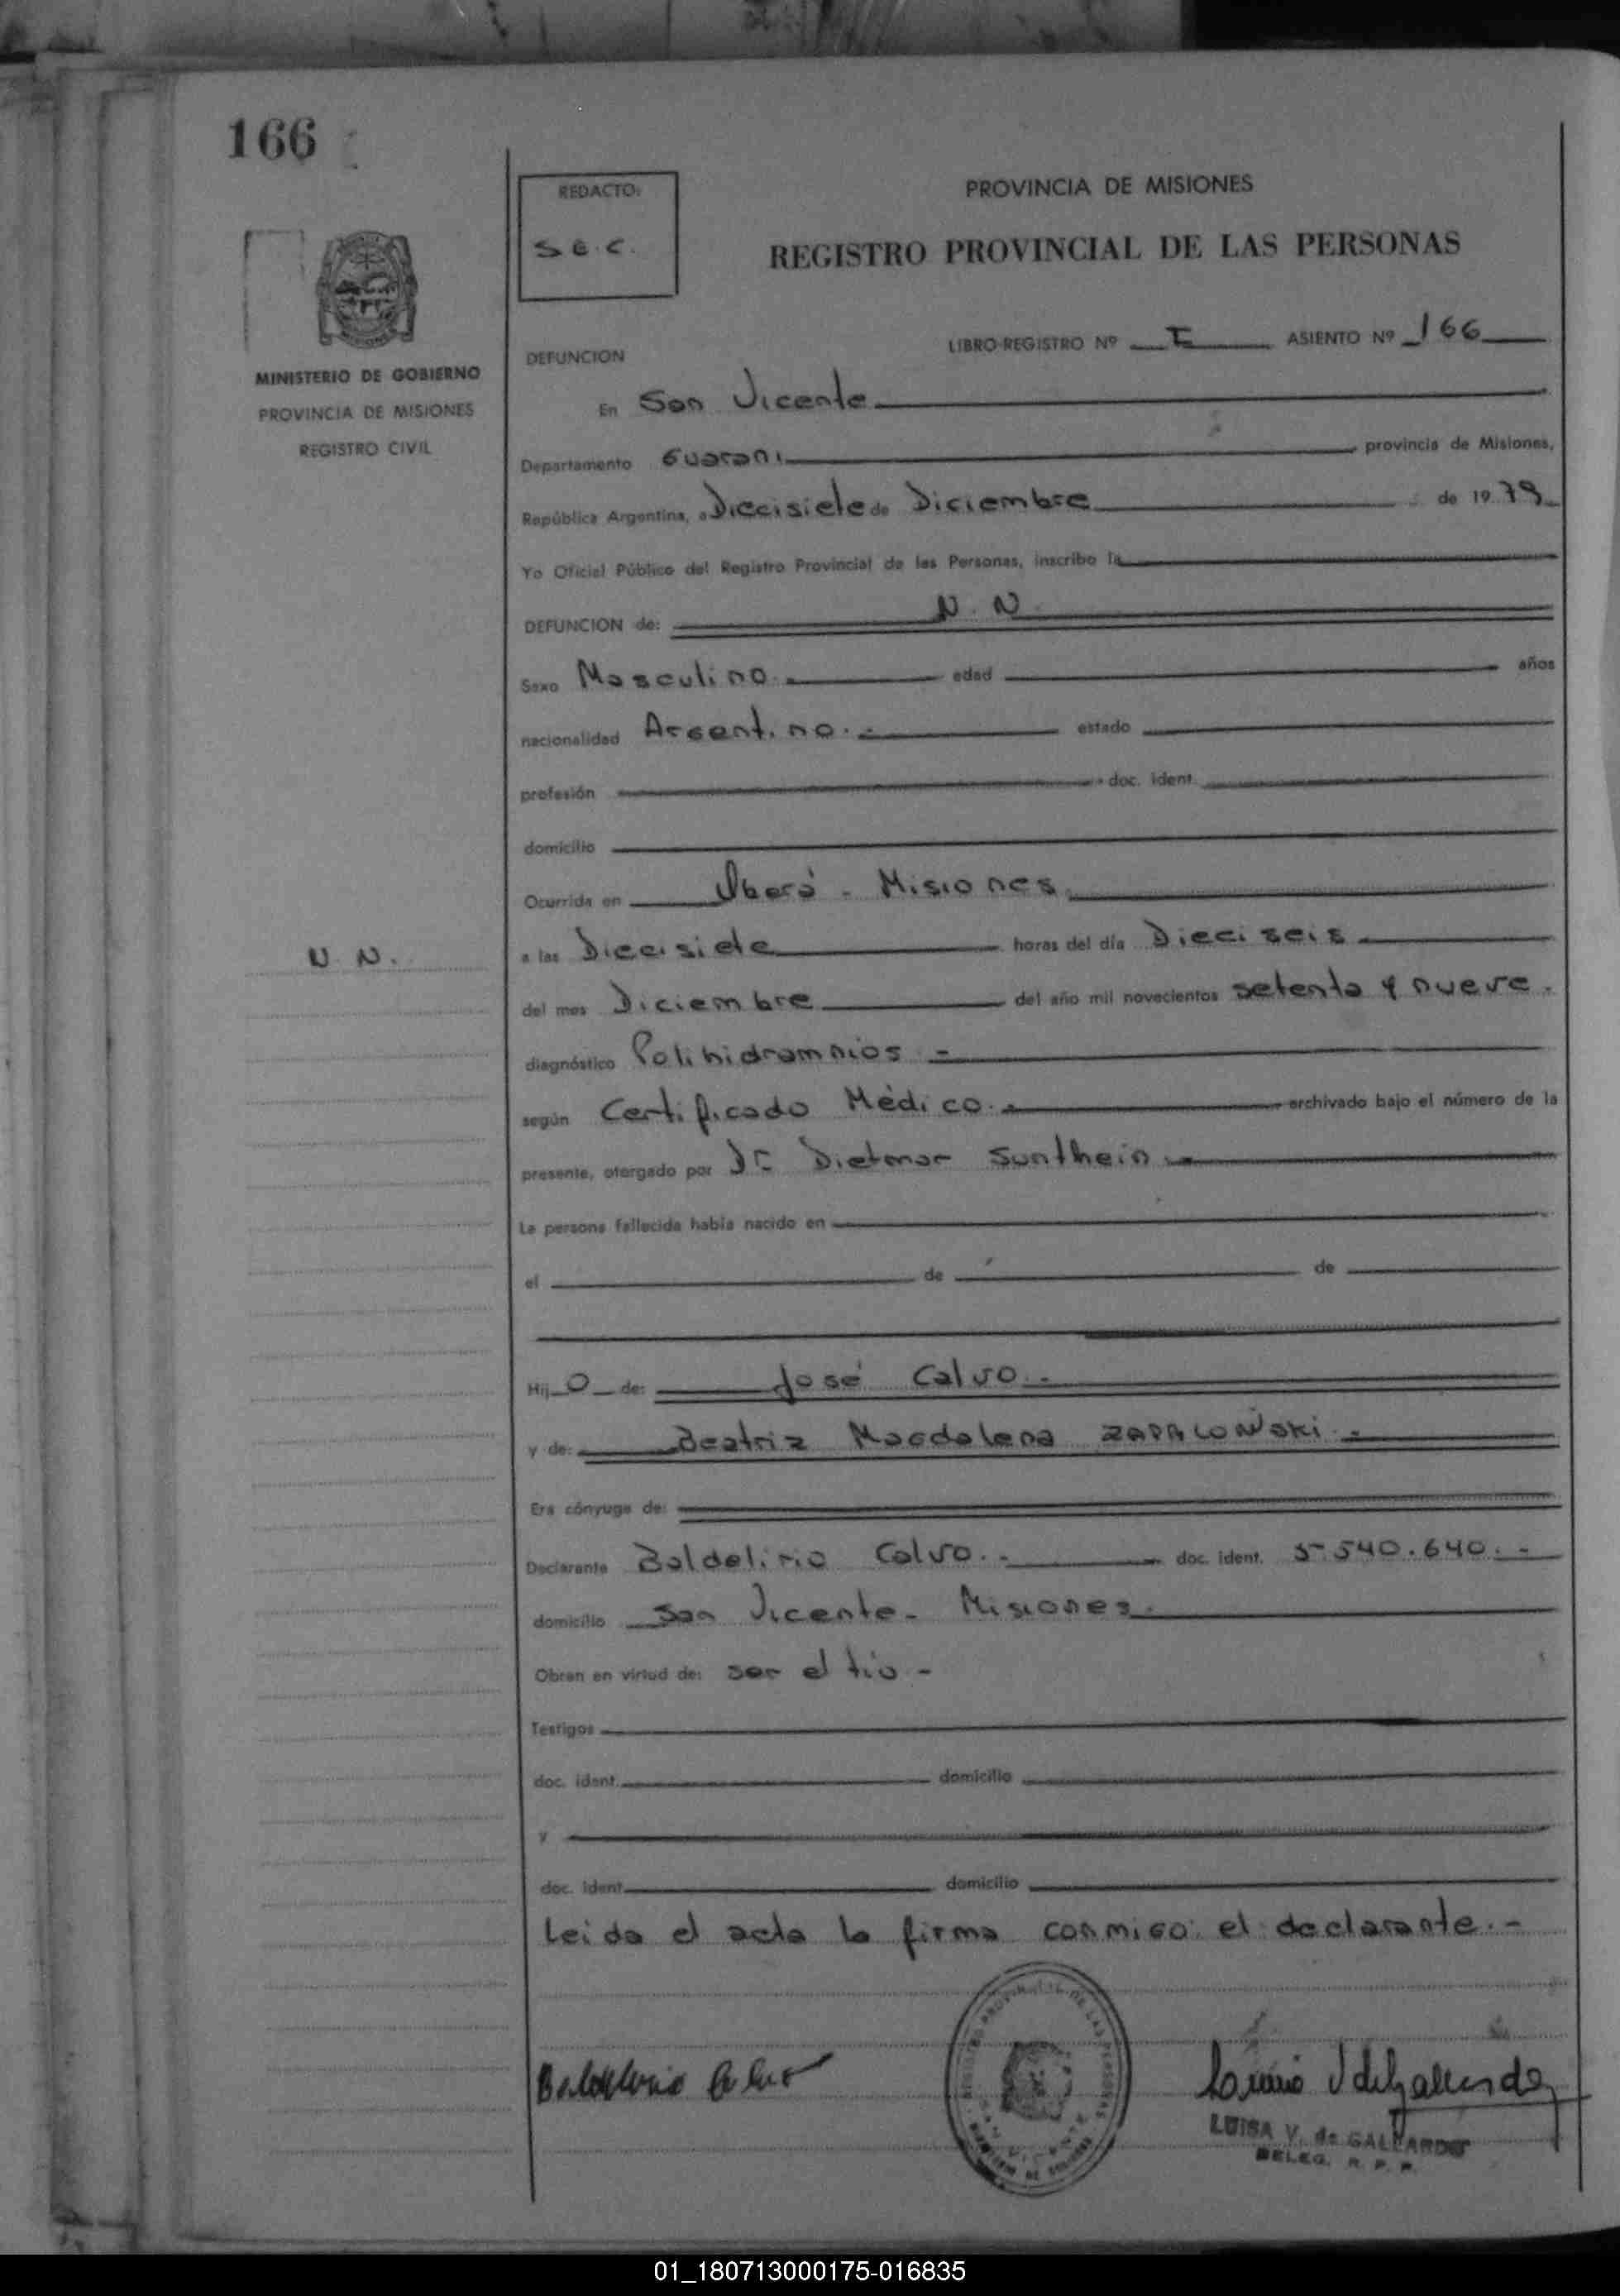 166
REDACTO:
S.E.C.
PROVINCIA DE MISIONES
REGISTRO PROVINCIAL DE LAS PERSONAS
MINISTERIO DE GOBIERNO
PROVINCIA DE MISIONES
REGISTRO CIVIL
LIBRO-REGISTRO Nº I ASIENTO Nº 166
DEFUNCION
En San Vicente
Departamento Guarani provincia de Misiones,
República Argentina, a Diecisiete de Diciembre de 1979
Yo Oficial Público del Registro Provincial de las Personas, inscribo la
DEFUNCION de: N. N
Sexo Masculino.- edad años
nacionalidad Argentino.- estado
profesión doc. ident.
domicilio
Ocurrida en Oberá - Misiones
N. N.
a las Diecisiete horas del día Dieciseis
del mes Diciembre del año mil novecientos setenta y nueve.
diagnóstico Polihidramnios -
según Certificado Mèdico.- archivado bajo el número de la
presente, otorgado por Dr. Dietmar Sunthein.-
La persona fallecida había nacido en
el de de
Hij o de: José Calvo.-
y de: Beatriz Magdalena ZAPALOWski.-
Era cónyuge de:
Declarante Baldelirio Calvo.- doc. ident. 5.540.640.-
domicilio San Vicente - Misiones.
Obran en virtud de: ser el tío -
Testigos
doc. ident. domicilio
y
doc. ident. domicilio
Leida el acta la firma conmigo: el declarante.-
Baldelirio Calvo
LUISA V. de GALLARDO
DELEG. R. P. P.
01_180713000175-016835